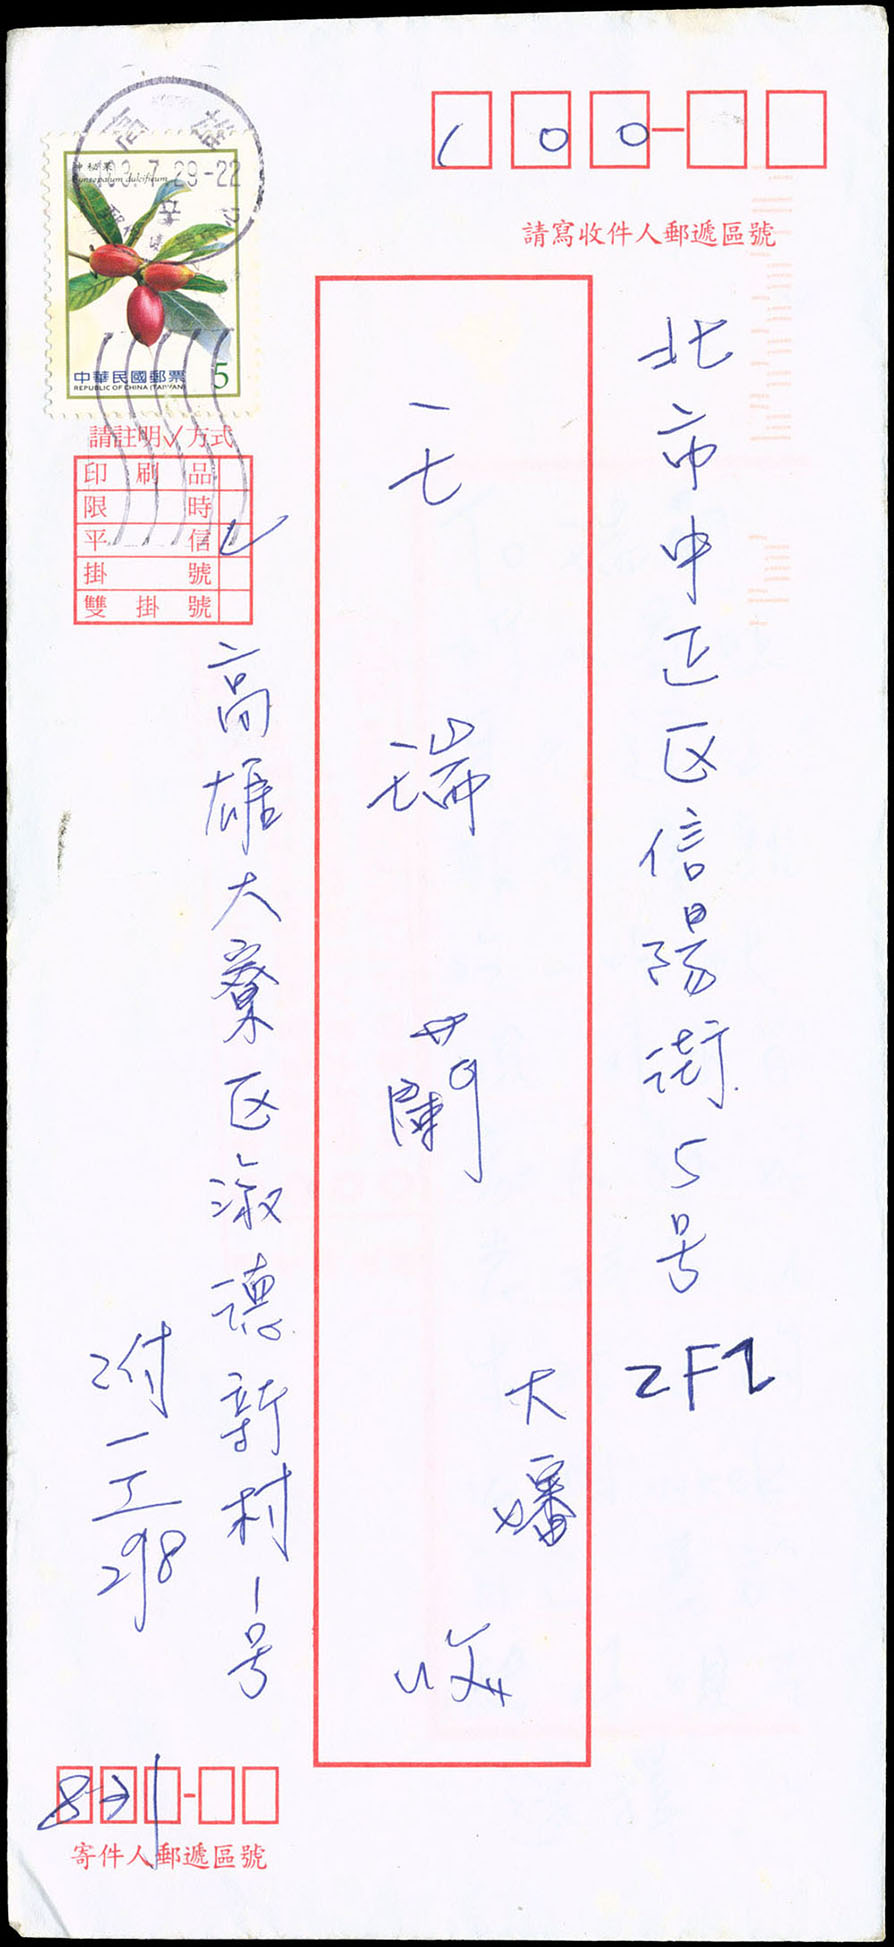 100
請寫收件人郵遞區號
北市中正区信陽街5号
2F1
王瑞蘭
大嬸
收
神秘果
Synsepalum dulcificum
103.7.29-22
中華民國郵票
5
REPUBLIC OF CHINA (TAIWAN)
請註明✓方式
印刷品
限時
平信 ✓
掛號
雙掛號
高雄大寮区淑德新村1号
附一工
298
831
寄件人郵遞區號